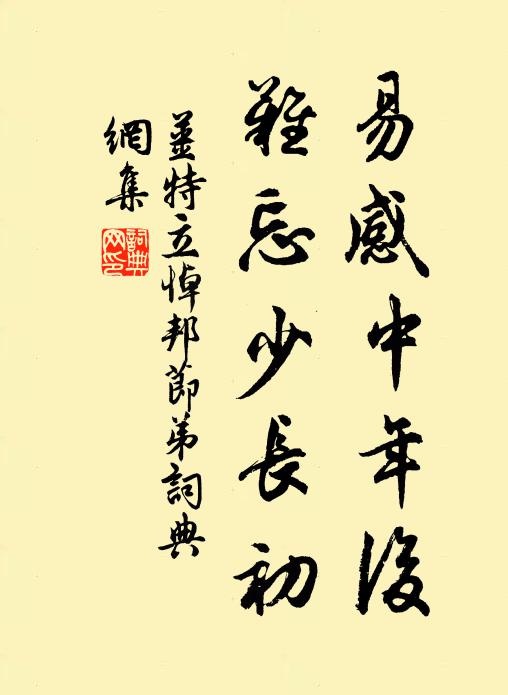 易感中年後
難忘少長初
姜特立悼邦節弟詞典
網集
詞典
网印